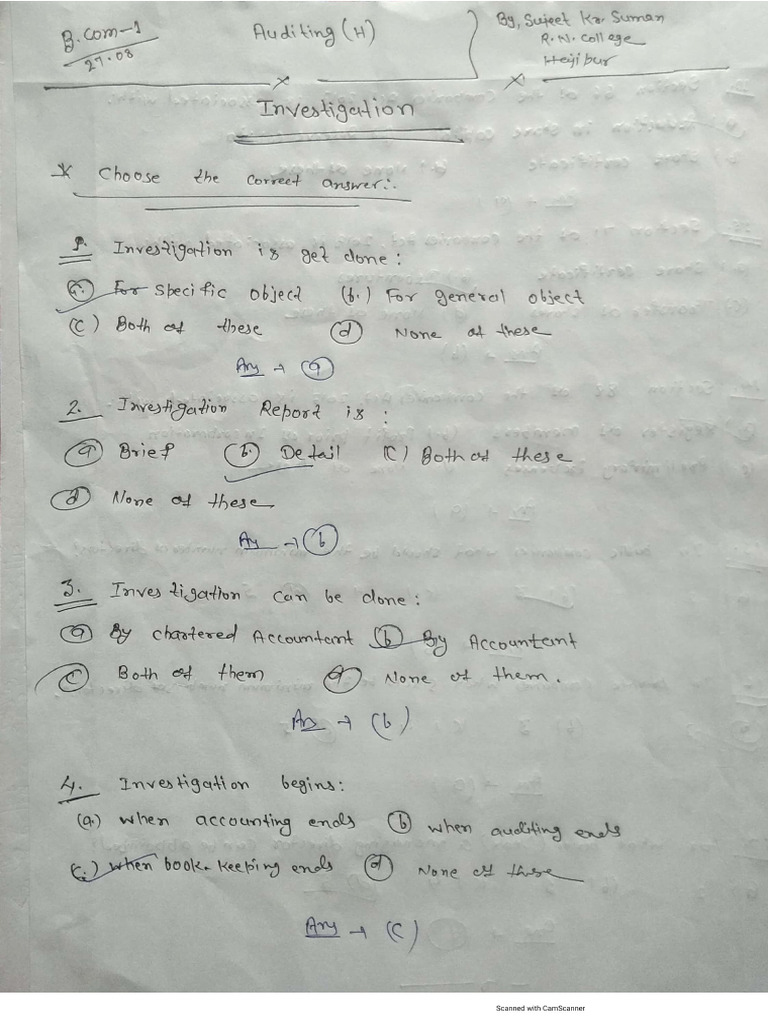 B.Com-1
27.08
Auditing (H)
By, Sujeet Kr. Suman
R.N. College
Hajipur
Investigation
* Choose the correct answer:.
1. Investigation is get done:
(a.) For Specific object (b.) For general object
(c) Both of these (d) None of these
Ans → (a)
2. Investigation Report is:
(a) Brief (b.) Detail (c) Both of these
(d) None of these
Ans → (b)
3. Investigation can be done:
(a) By chartered Accountant (b) By Accountant
(c) Both of them (d) None of them.
Ans → (b)
4. Investigation begins:
(a.) when accounting ends (b) when auditing ends
(c.) when book-keeping ends (d) None of these
Ans → (c)
Scanned with CamScanner